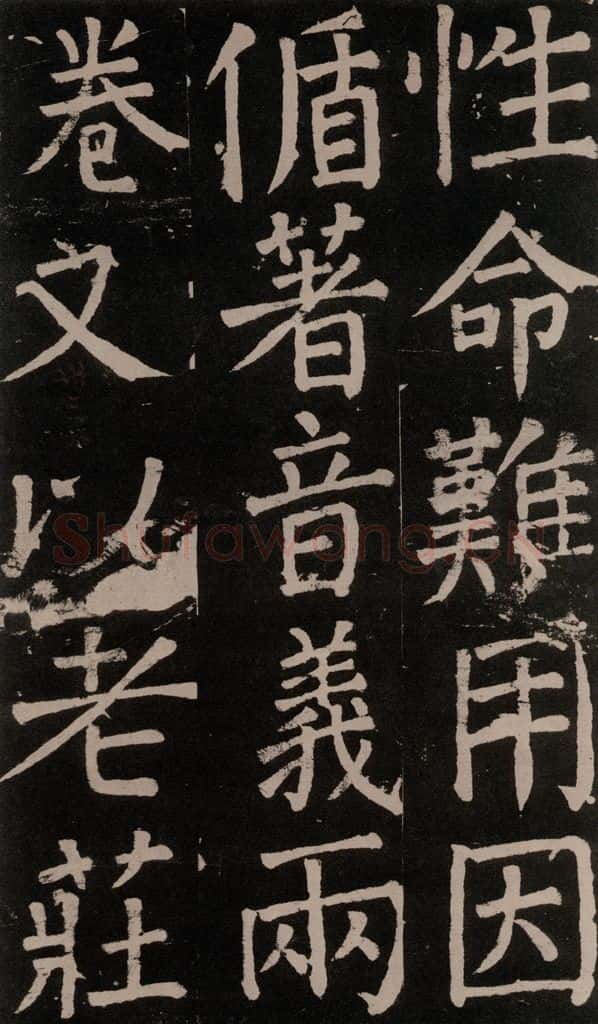 性命難用因
循著音義兩
卷文以老莊
Shufawang.CN